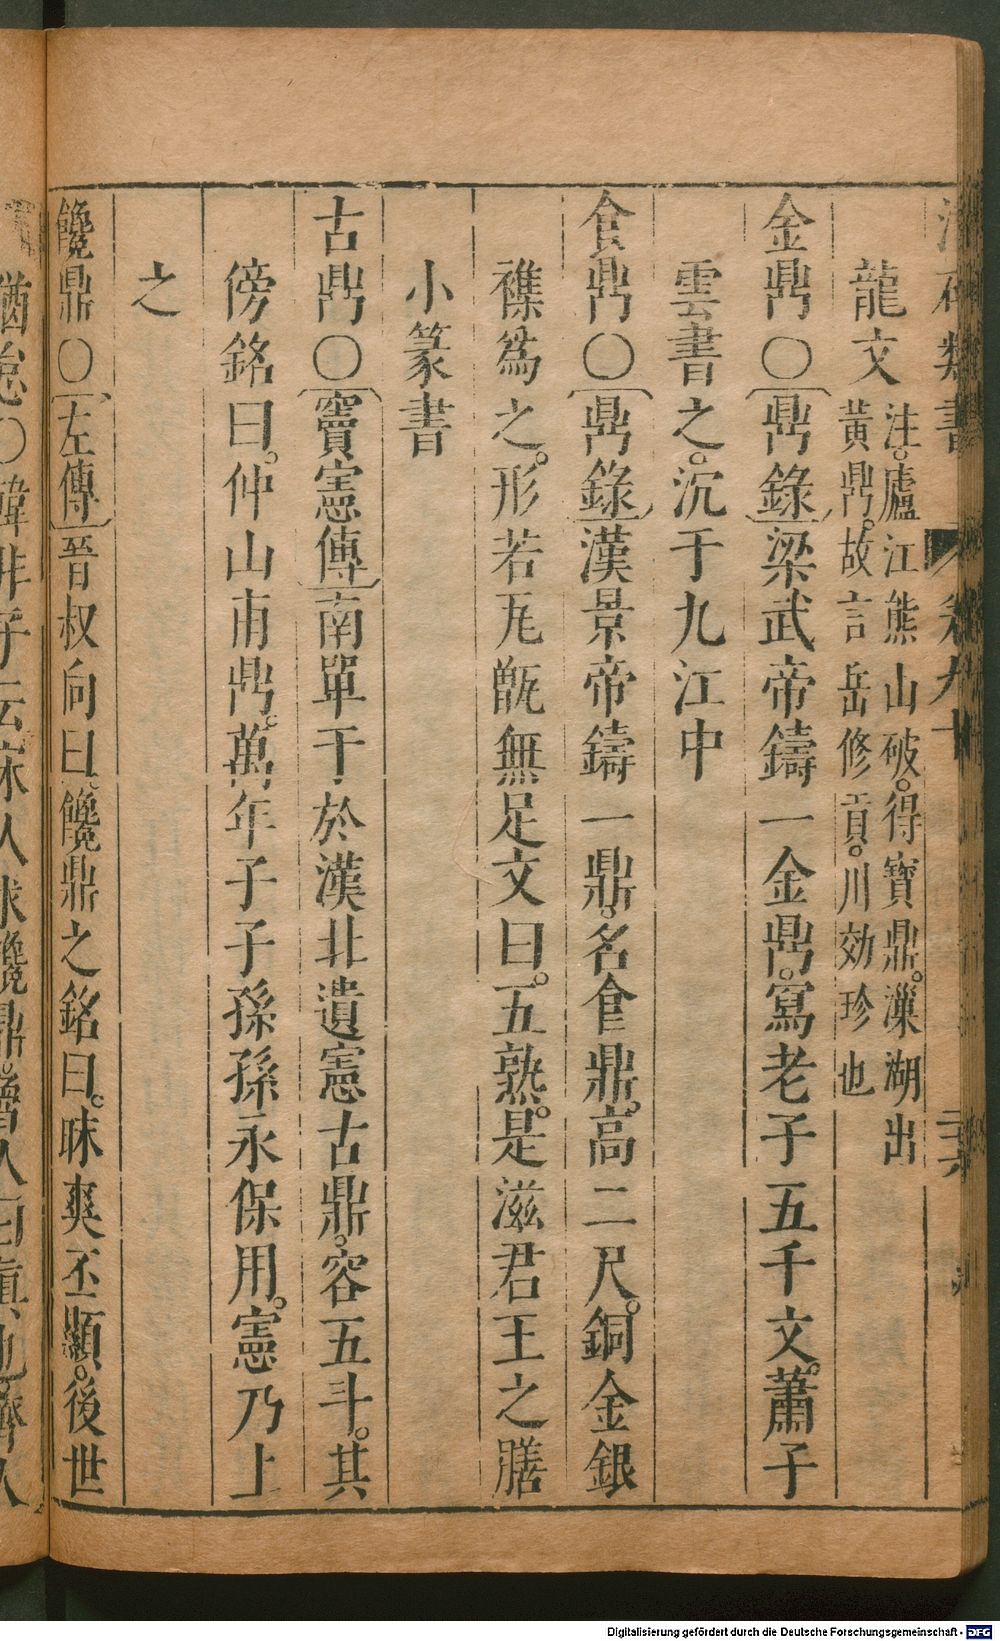 龍文
注。廬江熊山破。得寶鼎。漅湖出
黃鼎。故言岳修貢。川効珍也
金鼎○〔鼎錄〕梁武帝鑄一金鼎。寫老子五千文。蕭子
雲書之。沉于九江中
食鼎○〔鼎錄〕漢景帝鑄一鼎。名食鼎。高二尺。銅金銀
襍爲之。形若瓦甑無足文曰。五熟。是滋君王之膳
小篆書
古鼎○〔竇憲傳〕南單于於漢北遺憲古鼎。容五斗。其
傍銘曰。仲山甫鼎。萬年子子孫孫永保用。憲乃上
之
饞鼎○〔左傳〕晉叔向曰。饞鼎之銘曰。昧爽丕顯。後世
Digitalisierung gefördert durch die Deutsche Forschungsgemeinschaft - DFG